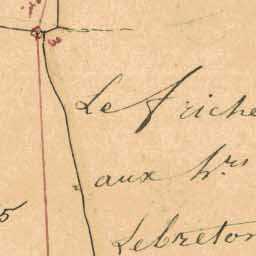 Le Friche
aux h.rs
5
Lebreton